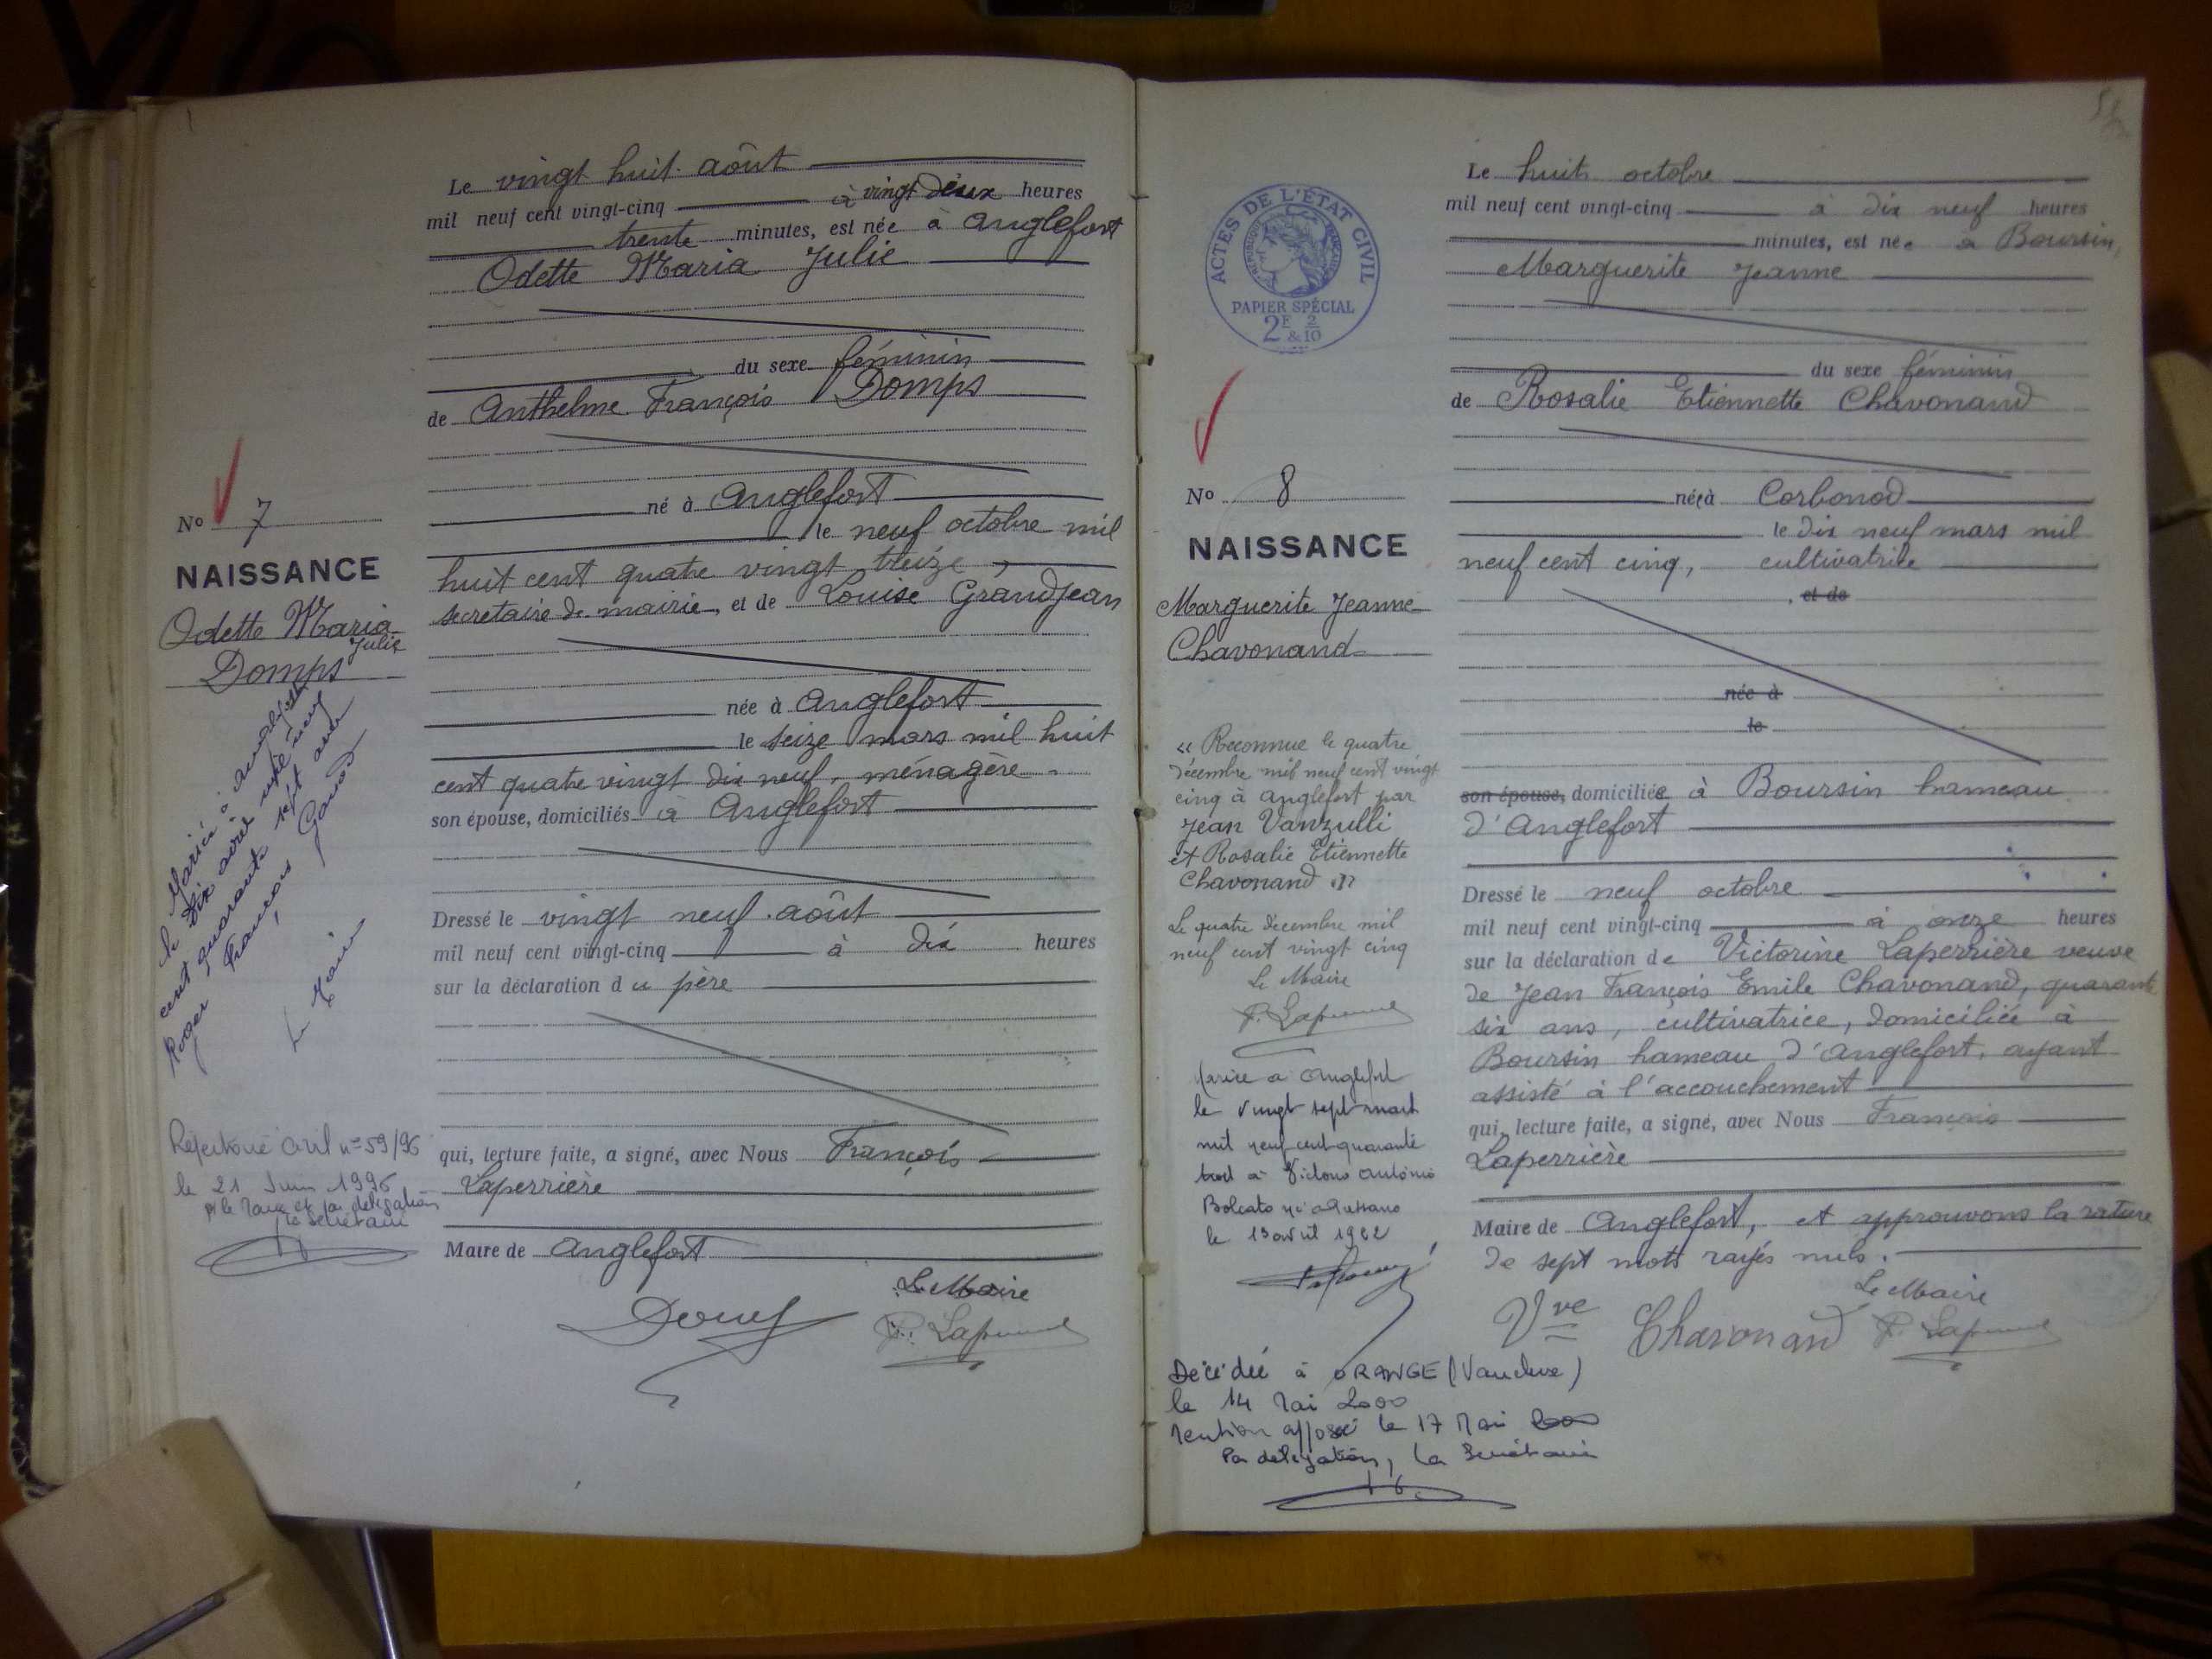 Le vingt huit août
mil neuf cent vingt-cinq à vingt deux heures
trente minutes, est née à Anglefort
Odette Maria Julie
du sexe féminin
de Anthelme François Domps
né à Anglefort
le neuf octobre mil
huit cent quatre vingt treize,
secretaire de mairie, et de Louise Grandjean
née à Anglefort
le seize mars mil huit
cent quatre vingt dix neuf, ménagère
son épouse, domiciliés à Anglefort
Dressé le vingt neuf août
mil neuf cent vingt-cinq à dix heures
sur la déclaration du père
qui, lecture faite, a signé, avec Nous François
Laperrière
Maire de Anglefort
Le Maire
No 7
NAISSANCE
Odette Maria
Julie
Domps
Mariée à Anglefort
le dix avril mil neuf
cent quarante sept avec
Roger François
Le Maire
Répertoire Civil n° 59/96
le 21 Juin 1996
p/ le Maire et par délégation
la Secrétaire
ACTES DE L'ÉTAT CIVIL
RÉPUBLIQUE FRANÇAISE
PAPIER SPÉCIAL
2F & 2/10
No 8
NAISSANCE
Marguerite Jeanne
Chavonand
« Reconnue le quatre
décembre mil neuf cent vingt
cinq à Anglefort par
Jean Vanzulli
et Rosalie Etiennette
Chavonand »
Le quatre decembre mil
neuf cent vingt cinq
Le Maire
Mariée à Anglefort
le vingt sept mars
mil neuf cent quarante
trois à Antonio
le 13 avril 1922
Décédée à ORANGE (Vaucluse)
le 14 Mai 2000
Mention apposée le 17 Mai 2000
Par délégation, la Secrétaire
Le huit octobre
mil neuf cent vingt-cinq à dix neuf heures
minutes, est née à Boursin,
Marguerite Jeanne
du sexe féminin
de Rosalie Etiennette Chavonand
née à Corbonod
le dix neuf mars mil
neuf cent cinq, cultivatrice
et de
née à
le
son épouse, domiciliée à Boursin hameau
d'Anglefort
Dressé le neuf octobre
mil neuf cent vingt-cinq à onze heures
sur la déclaration de Victorine Laperrière veuve
de Jean François Emile Chavonand, quarante
six ans, cultivatrice, domiciliée à
Boursin hameau d'Anglefort, ayant
assisté à l'accouchement
qui, lecture faite, a signé, avec Nous François
Laperrière
Maire de Anglefort, et approuvons la rature
de sept mots rayés nuls.
Le Maire
Vve Chavonand